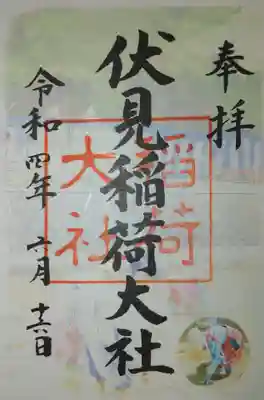 奉拝
伏見稲荷大社
稲荷
大社
令和四年六月十六日